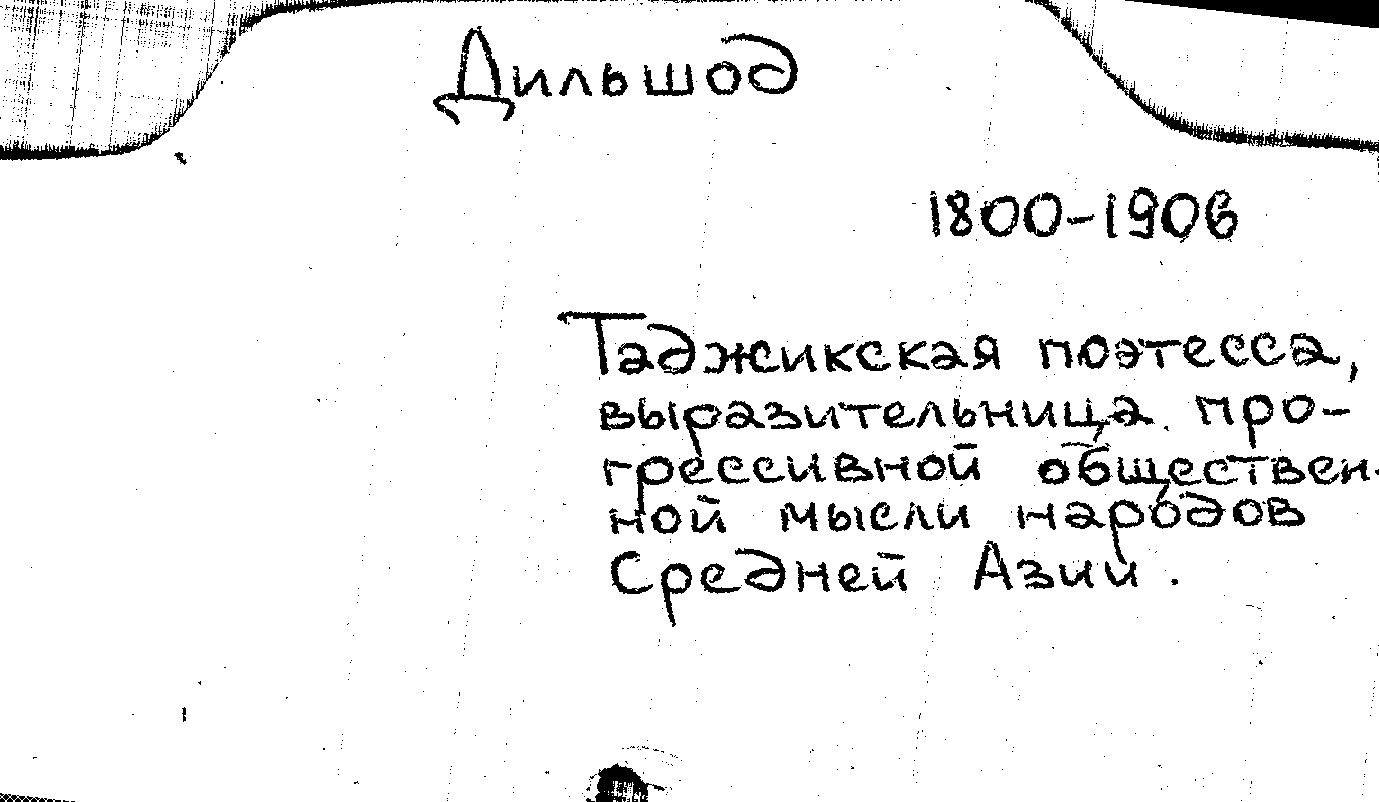 Дильшод
1800-1906
Таджикская поэтесса,
выразительница про-
грессивной обществен-
ной мысли народов
Средней Азии.